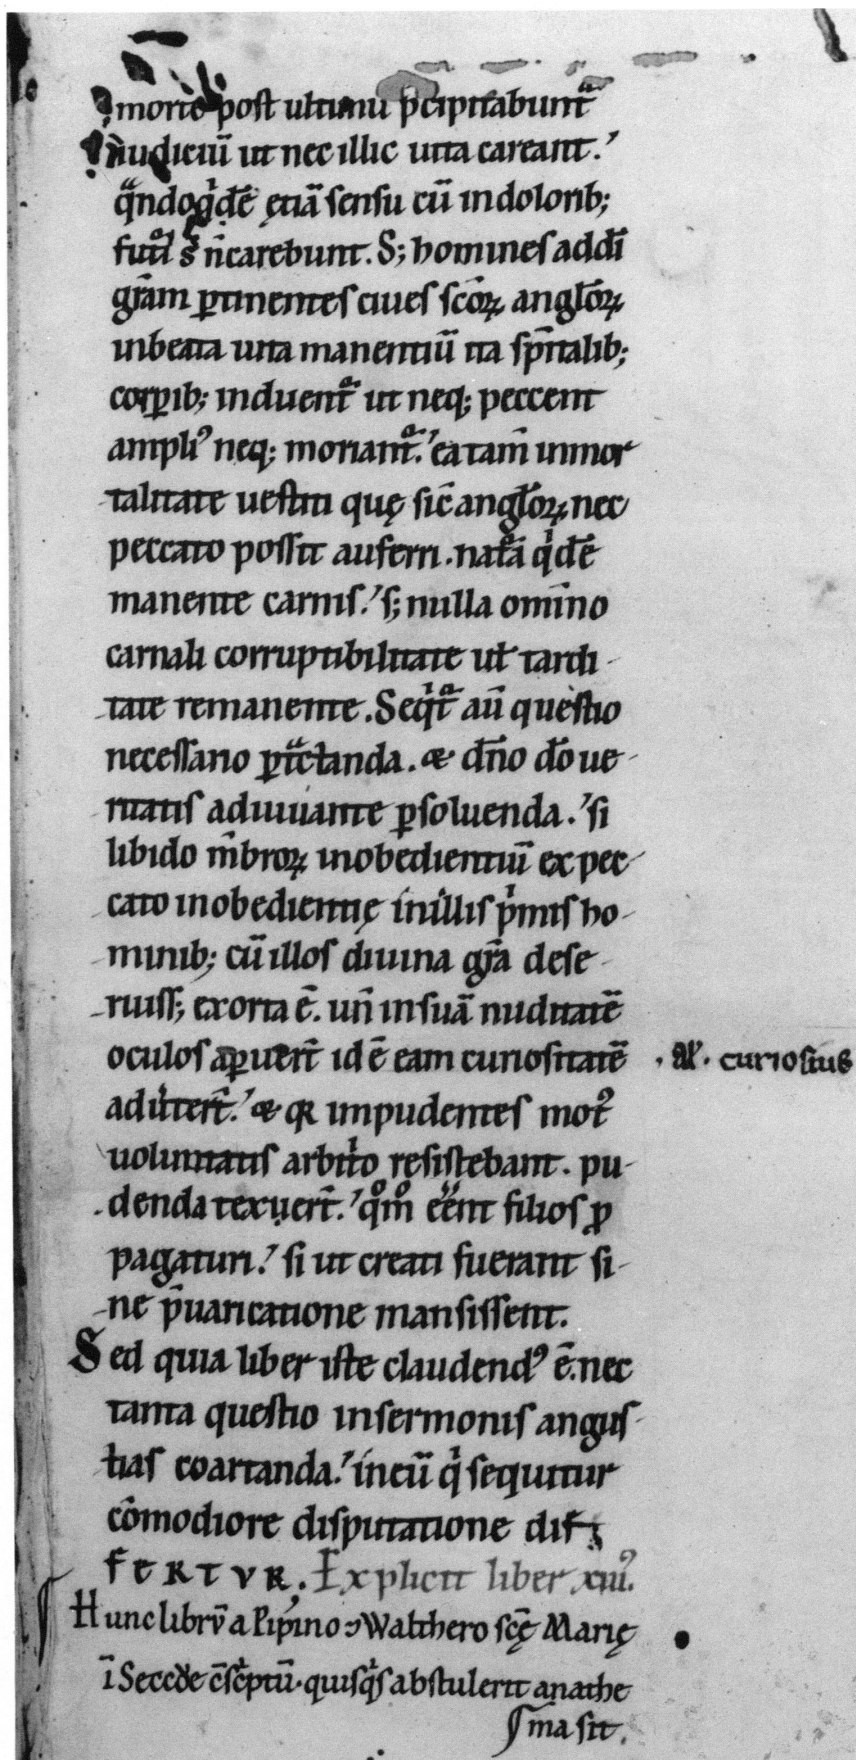 mortē post ultimū p̄cipitabunt᷑
iudiciū ut nec illic uita careant.
q̄ndoq̇dē ętiā sensu cū indolorib;
futi s̄ n̄ carebunt. S; homines addī
gr̄am ꝑtinentes ciues sc̄oꝝ angl̄oꝝ
inbeata uita manentiū ita sp̄italib;
corꝑib; induent᷑ ut neq; peccent
ampliꝰ neq; moriant᷑. ea tam̄ inmor
talitate uestiti quę sic̄ angl̄oꝝ nec
peccato possit auferri. nat̄a q̇dē
manente carnis. s; nulla om̄ino
carnali corruptibilitate uł tardi
tate remanente. Seq̇t᷑ aū questio
necessario ꝑtc̄tanda. & dn̄o dō ue
ritatis adiuuante ꝑsoluenda. si
libido m̄broꝝ inobedientiū ex pec
cato inobedientię inillis ṗmis ho
minib; cū illos diuina gr̄a dese
ruiss; exorta ē. un̄ insuā nuditatē
oculos aꝑuer̄t id ē eam curiositatē · al̄. curiosius
aduter̄t. & qꝛ impudentes motꝰ
uoluntatis arbiṫo resistebant. pu
denda texuer̄t. q̊m̊ eēnt filios ꝓ
pagaturi. si ut creati fuerant si
ne p̄uaricatione mansissent.
Sed quia liber iste claudendꝰ ē. nec
tanta questio insermonis angus
tias coartanda. incū q̇ sequitur
cōmodiore disputatione dif
FERTVR. Explicit liber xiiiꝰ.
Hunc librū a Pipino ⁊ Walthero sc̄ę Marię
ī Seccde c̄sċptū. quisq̇s abstulerit anathe
m̄a sit.